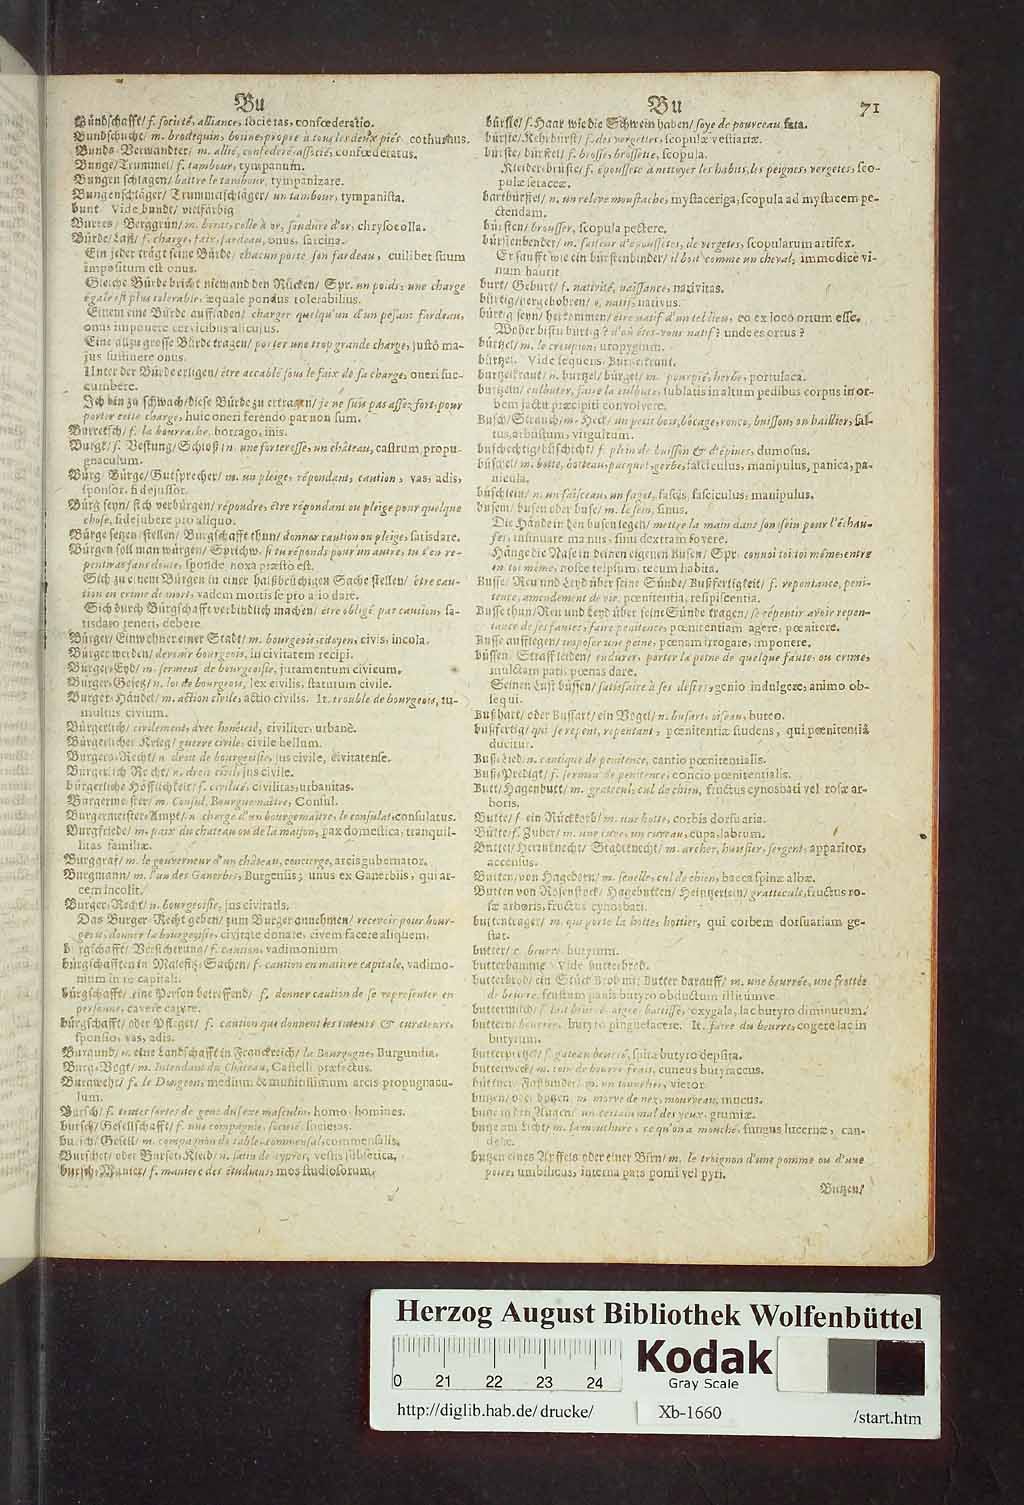 Bu
Bu
71
Bündschafft/ f. societé, alliance, societas, confœderatio.
Bundschucht/ m. brodequin, botine propre à tous les deux piés, cothurnus.
Bunds-Verwandter/ m. allié, confederé, associé, confœderatus.
Bunge/Trummel/ f. tambour, tympanum.
Bungen schlagen/ battre le tambour, tympanizare.
Bungenschläger/ Trummelschläger/ un tambour, tympanista.
bunt Vide bundt/ vielfärbig
Burres/ Berggrün/ m. boras, colle à or, soudure d'or, chrysocolla.
Bürde/Last/ f. charge, faix, fardeau, onus, sarcina.
Ein jeder trägt seine Bürde/ chacun porte son fardeau, cuilibet suum
impositum est onus.
Gleiche Bürde bricht niemand den Rücken/ Spr. un poids, une charge
égale est plus tolerable, æquale pondus tolerabilius.
Einem eine Bürde auffladen/ charger quelqu'un d'un pesant fardeau,
onus imponere cervicibus alicujus.
Eine allzu grosse Bürde tragen/ porter une trop grande charge, justô ma-
jus sustinere onus.
Unter der Bürde erligen/ être accablé sous le faix de sa charge, oneri suc-
cumbere.
Ich bin zu schwach/diese Bürde zu ertragen/ je ne suis pas assez fort, pour
porter cette charge, huic oneri ferendo par non sum.
Burretsch/ f. la bourrache, borrago, inis.
Burgt/ f. Vestung/ Schloß/ n. une forteresse, un château, castrum, propu-
gnaculum.
Bürg/ Bürge/ Gutsprecher/ m. un pleige, répondant, caution, vas, adis,
sponsor, fidejussor.
Bürg seyn/ sich verbürgen/ répondre, être répondant ou pleige pour quelque
chose, fidejubere pro aliquo.
Bürge setzen/stellen/ Bürgschafft thun/ donner caution ou pleige, satisdare.
Bürgen soll man würgen/ Sprichw. si tu réponds pour un autre, tu t'en re-
pentiras sans doute, sponde, noxa præsto est.
Sich zu einem Bürgen in einer halßbrüchigen Sache stellen/ être cau-
tion en crime de mort, vadem mortis se pro alio dare.
Sich durch Bürgschafft verbindlich machen/ être obligé par caution, sa-
tisdato teneri, debere
Bürger/ Einwohner einer Stadt/ m. bourgeois, citoyen, civis, incola.
Bürger werden/ devenir bourgeois, in civitatem recipi.
Bürger-Eyd/ m. serment de bourgeoisie, juramentum civicum.
Burger-Gesetz/ n. loi de bourgeois, lex civilis, statutum civile.
Burger-Händel/ m. action civile, actio civilis. It. trouble de bourgeois, tu-
multus civium.
Bürgerlich/ civilement, avec honêteté, civiliter, urbanè.
Bürgerlicher Krieg/ guerre civile, civile bellum.
Burgers-Recht/ n. droit de bourgeoisie, jus civile, civitatense.
Bürgerlich Recht/ n. droit civil, jus civile.
bürgerliche Höfflichkeit/ f. civilité, civilitas, urbanitas.
Burgermeister/ m. Consul, Bourguemaître, Consul.
Burgermeister-Ampt/ n. charge d'un bourgemaitre, le consulat, consulatus.
Burgfriede/ m. paix du chateau ou de la maison, pax domestica, tranquil-
litas familiæ.
Burggraf/ m. le gouverneur d'un château, concierge, arcis gubernator.
Burgmann/ m. l'un des Ganerbes, Burgensis; unus ex Ganerbiis, qui ar-
cem incolit.
Burger-Recht/ n. bourgeoisie, jus civitatis.
Das Burger-Recht geben/ zum Burger annehmen/ recevoir pour bour-
geois, donner la bourgeoisie, civitate donare, civem facere aliquem.
bürgschafft/ Versicherung/ f. caution, vadimonium.
bürgschafften in Malefitz-Sachen/ f. caution en matiere capitale, vadimo-
nium in re capitali.
bürgschafft/ eine Person betreffend/ f. donner caution de se representer en
personne, cavere capite.
bürgschafft/ oder Pfleger/ f. caution que donnent les tuteurs & curateurs,
sponsio, vas, adis.
Burgund/ n. eine Landschafft in Franckreich/ la Bourgogne, Burgundia.
Burg-Vogt/ m. Intendant du Château, Castelli præfectus.
Burgwehr/ f. le Dongeon, medium & munitissimum arcis propugnacu-
lum.
Bursch/ f. toutes sortes de gens du sexe masculin, homo, homines.
bursch/ Gesellschafft/ f. une compagnie, societé, societas.
bursch/ Gesell/ m. compagnon de table, commensal, commensalis.
Burschet/ oder Burset-Kleid/ n. satin de cypres, vestis subserica.
bursch-Manier/ f. maniere des étudians, mos studiosorum.
bürste/ f. Haar wie die Schwein haben/ soye de pourceau, seta.
bürste/Kehrbürst/ f. des vergettes, scopulæ vestiariæ.
bürste/ bürstel/ f. brosse, brossette, scopula.
Kleider-bürste/ f. époussete à nettoyer les habits, les peignes, vergetes, sco-
pulæ setaceæ.
bartbürstel/ n. un releve moustache, mystaceriga, scopula ad mystacem pe-
ctendam.
bürsten/ brousser, scopula pectere.
bürstenbender/ m. faiseur d'époussetes, de vergetes, scopularum artifex.
Er saufft wie ein bürstenbinder/ il boit comme un cheval, immodicè vi-
num haurit.
burt/ Geburt/ f. nativité, naissance, nativitas.
bürtig/vergebohren/ o, natif, nativus.
bürtig seyn/ herkommen/ être natif d'un tel lieu, eo ex loco ortum esse.
Woher bistu bürtig? d'où êtes-vous natif? unde es ortus?
bürtzel/ m. le croupion, uropygium.
bürtzel. Vide sequens, Burtzelkraut.
burtzelkraut/ n. burtzel/ bürgel/ m. pourpié, herbe, portulaca.
burtzeln/ culbuter, faire la culbute, sublatis in altum pedibus corpus in or-
bem jactu præcipiti convolvere.
Busch/Strauch/ m. Heck/ un petit bois, bôcage, ronce, buisson, ou haillier, sal-
tus, arbustum, virgultum.
buschechtig/büschicht/ f. plein de buisson & d'épines, dumosus.
büschel/ m. botte, boteau, pacquet, gerbe, fasciculus, manipulus, panica, pa-
nicula.
büschlein/ n. un faisceau, un fagot, fascis, fasciculus, manipulus.
busem/ busen oder buse/ m. le sein, sinus.
Die Hände in den busen legen/ mettre la main dans son sein pour l'échau-
fer, insinuare manus, sinu dextram fovere.
Hänge die Nase in deinen eigenen Busen/ Spr. connoi toi toi même, entre
en toi même, nosce teipsum, tecum habita.
Busse/ Reu und Leyd über seine Sünde/ Bußfertigkeit/ f. repentance, peni-
tence, amendement de vie, pœnitentia, resipiscentia.
Busse thun/Reu und Leyd über seine Sünde tragen/ se répentir, avoir repen-
tance de ses fautes, faire penitence, pœnitentiam agere, pœnitere.
Busse aufflegen/ imposer une peine, pœnam irrogare, imponere.
büssen/ Straff leiden/ endurer, porter la peine de quelque faute, ou crime,
mulctam pati, pœnas dare.
Seinen Lust büssen/ satisfaire à ses desirs, genio indulgere, animo ob-
sequi.
Bußhart/ oder Bussart/ ein Vogel/ n. busart, oiseau, buteo.
bußfertig/ qui se repent, repentant, pœnitentiæ studens, qui pœnitentiâ
ducitur.
Buß-Lied/ n. cantique de penitence, cantio pœnitentialis.
Buß-Predigt/ f. sermon de penitence, concio pœnitentialis.
Butt/ Hagenbutt/ m. gratecul, cul de chien, fructus cynosbati vel rosæ ar-
boris.
Butte/ f. ein Rückkorb/ m. une hotte, corbis dorsuaria.
Bütte/ f. Zuber/ m. une cuve, un cuveau, cupa, labrum.
Büttel/ Herrnknecht/ Stadtknecht/ m. archer, huissier, sergent, apparitor,
accensus.
Butten/ von Hagedorn/ m. senelle, cul de chien, bacca spinæ albæ.
Butten von Rosenstock/ Hagebutten/ Heintzerlein/ gratteculs, fructus ro-
sæ arboris, fructus cynosbati.
buttenträger/ m. qui porte la hotte, hottier, qui corbem dorsuariam ge-
stat.
butter/ c. beurre, butyrum.
butterbamme. Vide butterbrod.
butterbrod/ ein Stück Brod mit Butter darauff/ m. une beurrée, une frottée
de beurre, frustum panis butyro obductum illitumve.
buttermilch/ f. lait beurré, aigre, battisse, oxygala, lac butyro diminutum.
buttern/ beurrer, butyro pinguefacere. It. faire du beurre, cogere lac in
butyrum.
butterpretzel/ f. gateau beurré, spira butyro depsita.
butterweck/ m. coin de beurre frais, cuneus butyraceus.
büttner/ Faßbinder/ m. un tonnelier, vietor.
butzen/ oder botzen, m. morve de nez, mourveau, mucus.
butze in den Augen/ un certain mal des yeux, gramiæ.
butze am Licht/ m. la mouchure, ce qu'on a mouché, fungus lucernæ, can-
delæ.
butzen eines Apffels oder einer Birn/ m. le troignon d'une pomme ou d'une
poire, umbilicus, interna pars pomi vel pyri.
Butzen/
Herzog August Bibliothek Wolfenbüttel
0 21 22 23 24
Kodak
Gray Scale
http://diglib.hab.de/drucke/ Xb-1660 /start.htm